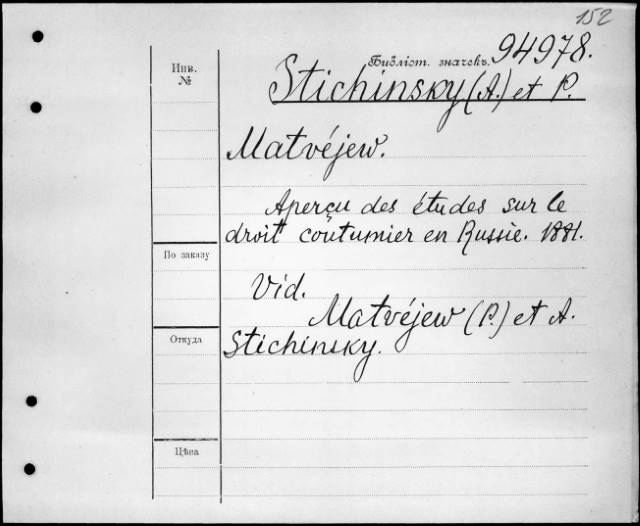 152
Инв.
№
Библіот. значекъ. 94978.
Stichinsky (A.) et P.
Matvéjew.
Aperçu des études sur le
droit coutumier en Russie. 1881.
По заказу
Vid.
Matvéjew (P.) et A.
Откуда
Stichinsky.
Цѣна